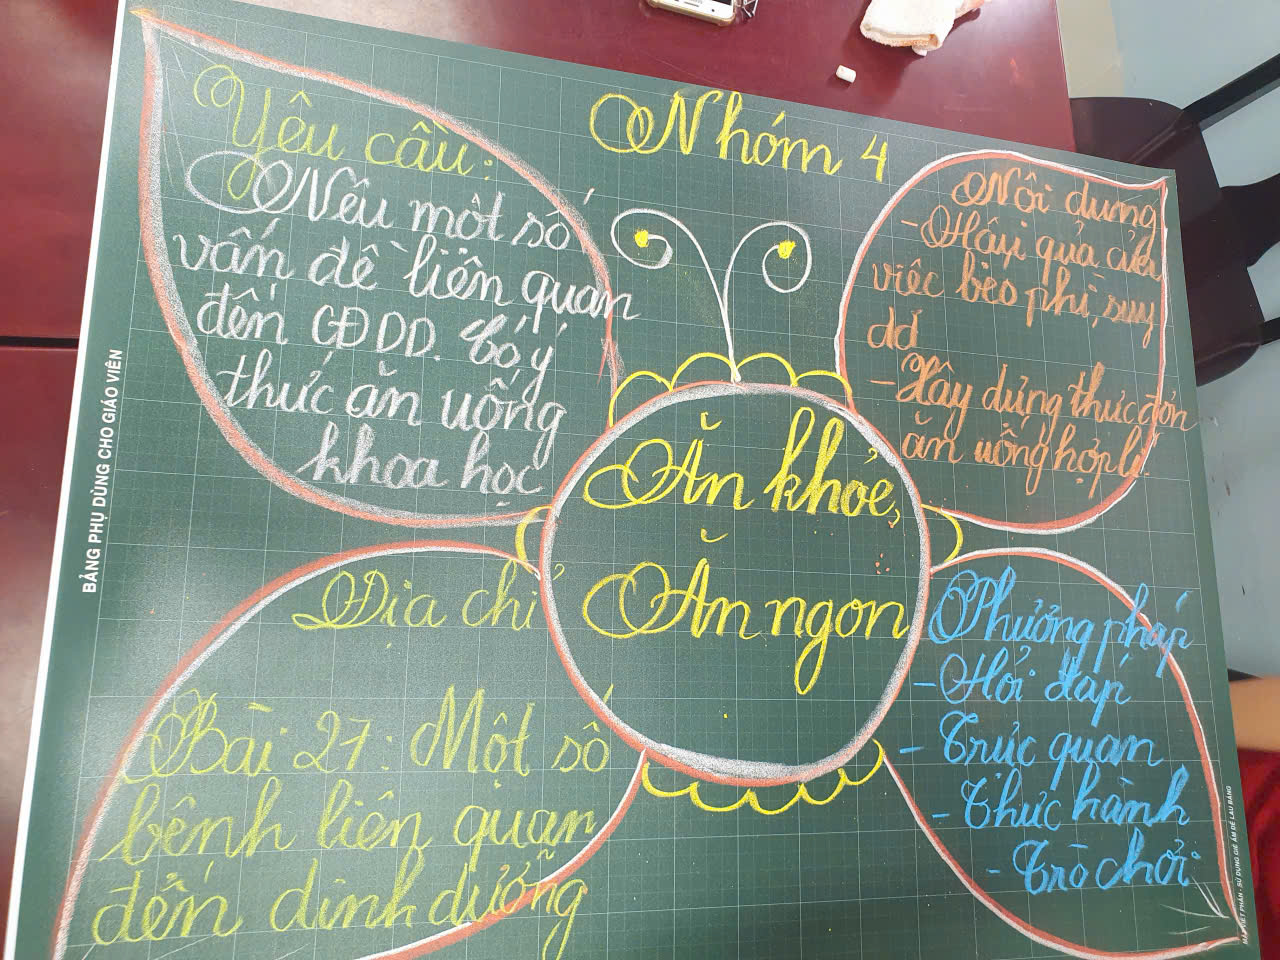 Nhóm 4
Yêu cầu:
Nêu một số
vấn đề liên quan
đến CĐDD. Có ý
thức ăn uống
khoa học
Nội dung
- Hậu quả của
việc béo phì, suy
dd
- Xây dựng thực đơn
ăn uống hợp lí.
Ăn khỏe,
Ăn ngon
Địa chỉ
Bài 27: Một số
bệnh liên quan
đến dinh dưỡng
Phương pháp
- Hỏi đáp
- Trực quan
- Thực hành
- Trò chơi
BẢNG PHỤ DÙNG CHO GIÁO VIÊN